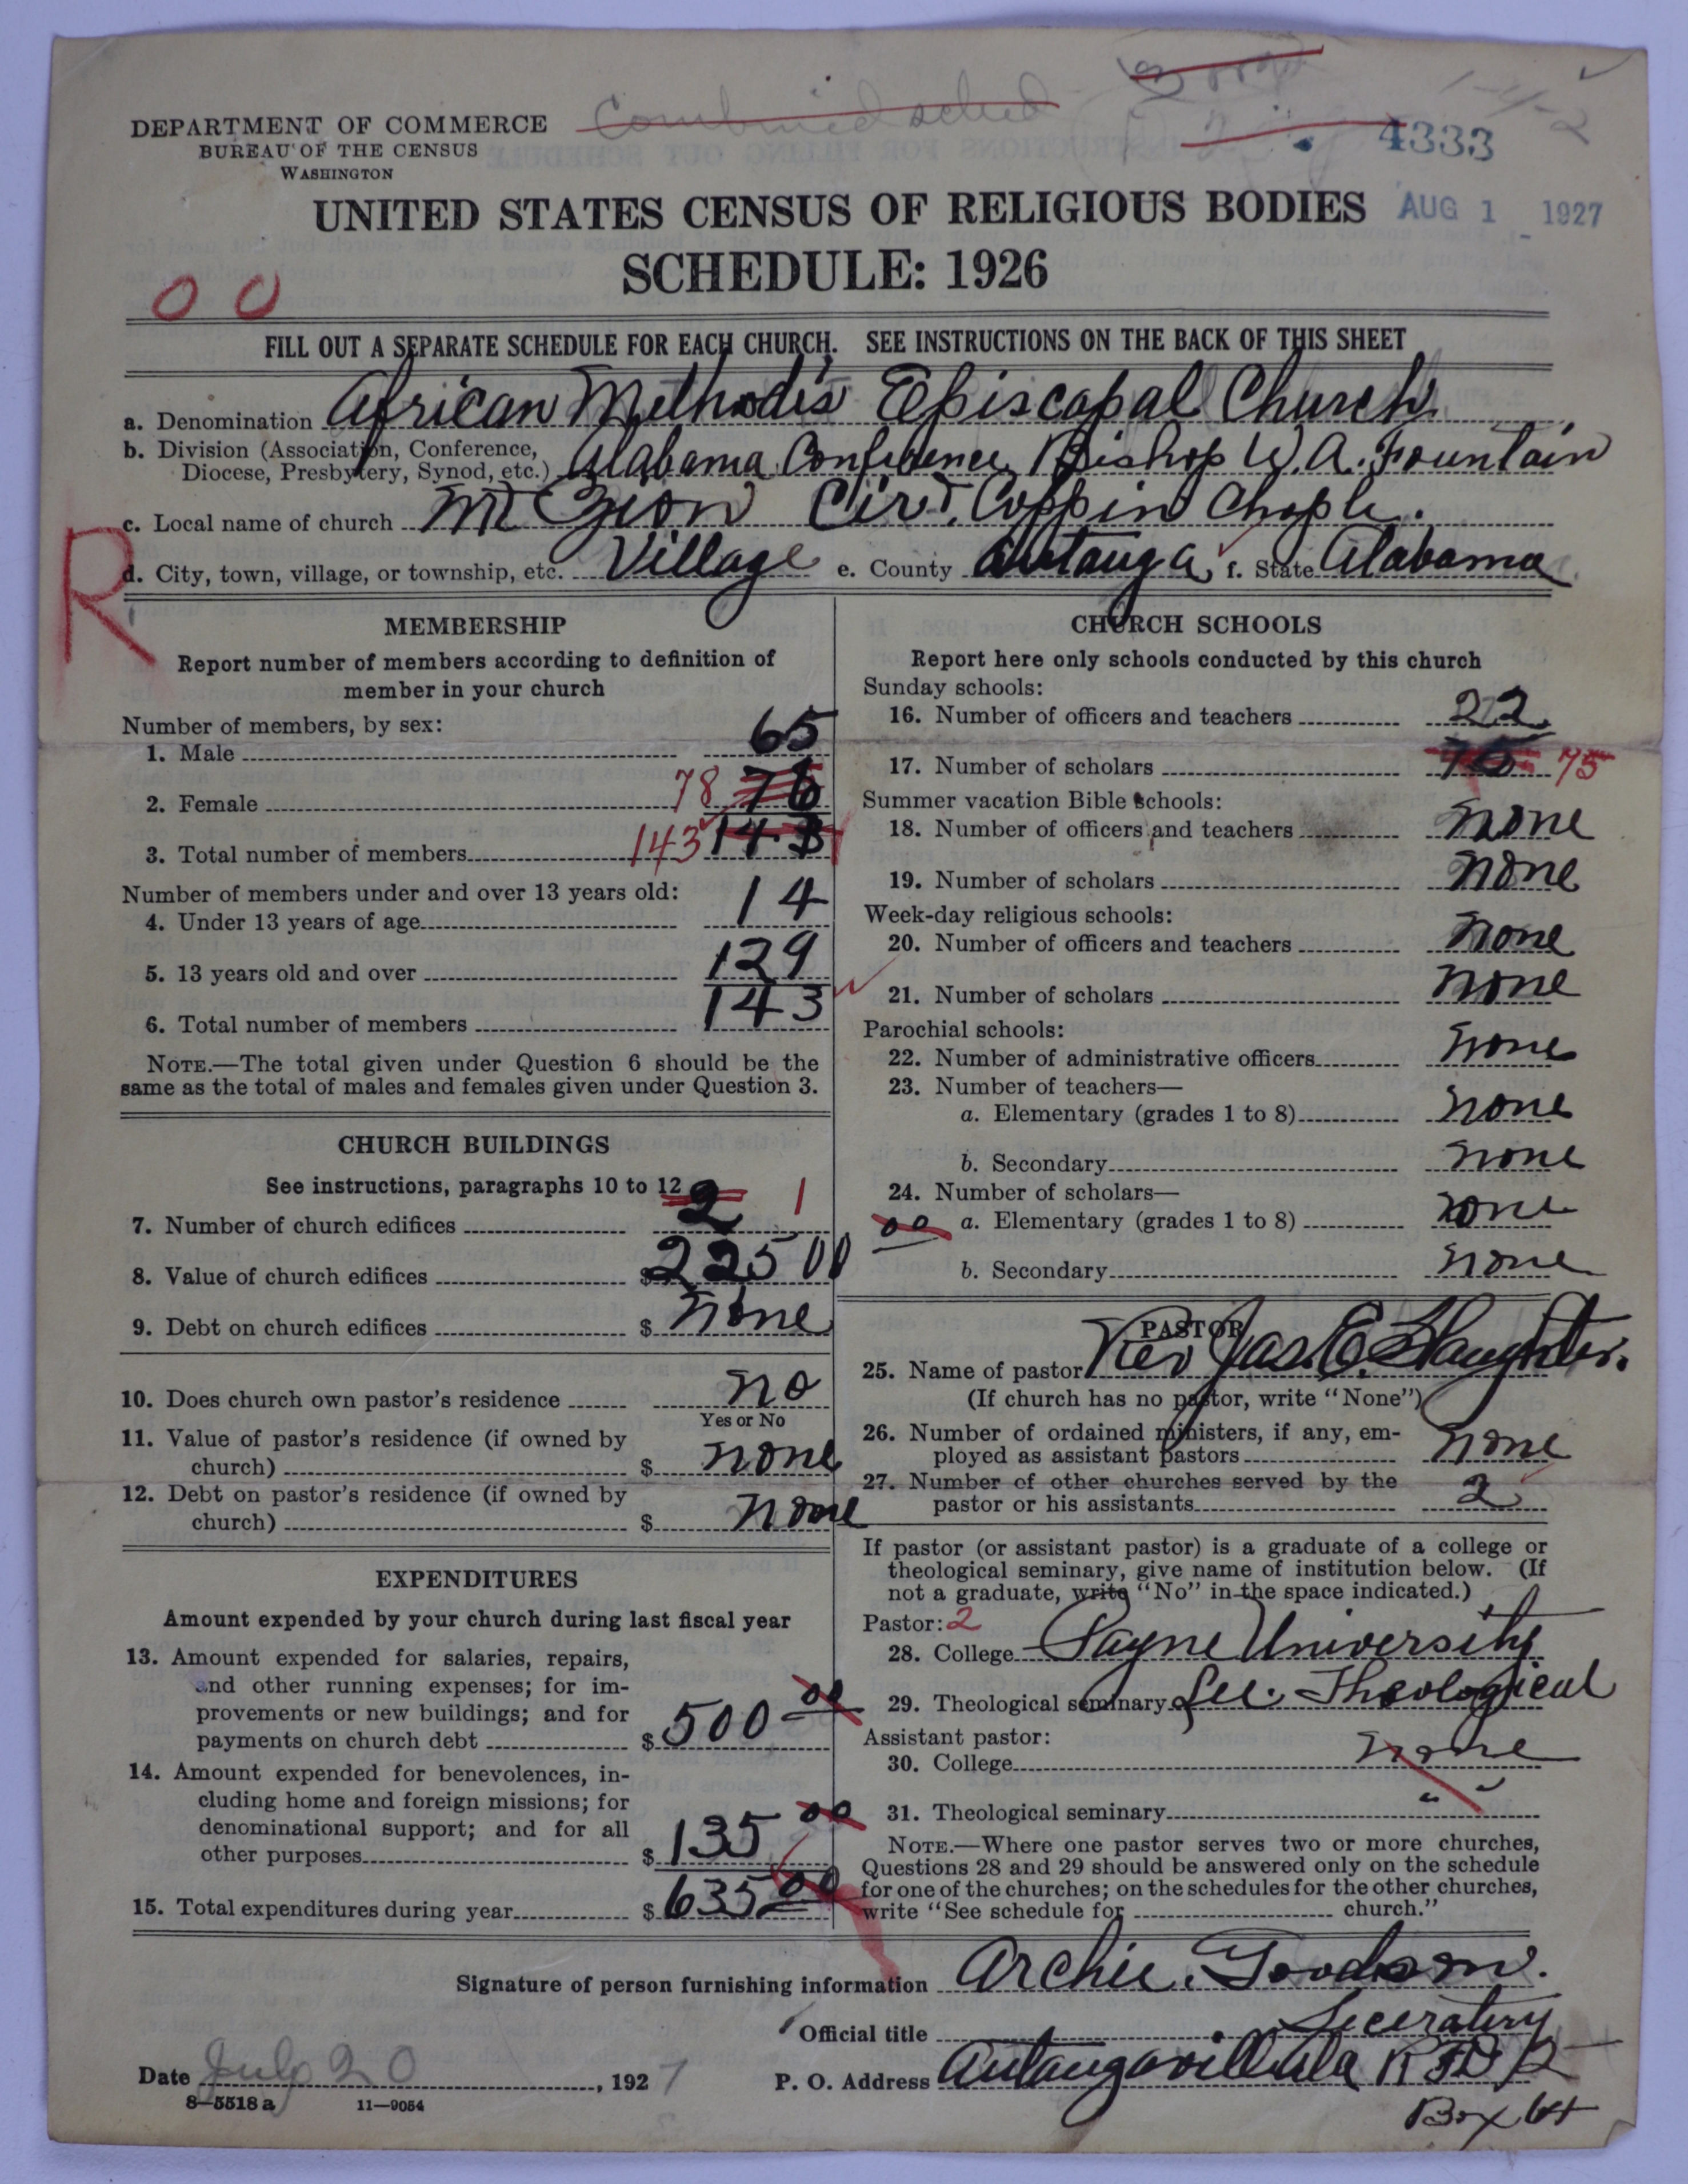 Combined sched
4333
DEPARTMENT OF COMMERCE
BUREAU OF THE CENSUS
WASHINGTON
UNITED STATES CENSUS OF RELIGIOUS BODIES
AUG 1 1927
SCHEDULE: 1926
00
FILL OUT A SEPARATE SCHEDULE FOR EACH CHURCH. SEE INSTRUCTIONS ON THE BACK OF THIS SHEET
a. Denomination African Methodis Episcopal Church
b. Division (Association, Conference,
Diocese, Presbytery, Synod, etc.) Alabama Conference, Bishop W. A. Fountain
c. Local name of church Mt Zion Cir. Coppin Chaple.
R
d. City, town, village, or township, etc. Village e. County Autauga, f. State Alabama
MEMBERSHIP
Report number of members according to definition of
member in your church
Number of members, by sex:
1. Male 65
2. Female 78 78
3. Total number of members 143 143
Number of members under and over 13 years old:
4. Under 13 years of age 14
5. 13 years old and over 129
6. Total number of members 143
NOTE.—The total given under Question 6 should be the
same as the total of males and females given under Question 3.
CHURCH BUILDINGS
See instructions, paragraphs 10 to 12
7. Number of church edifices 2 1
8. Value of church edifices $ 22500
9. Debt on church edifices $ none
10. Does church own pastor's residence no
Yes or No
11. Value of pastor's residence (if owned by
church) $ none
12. Debt on pastor's residence (if owned by
church) $ none
EXPENDITURES
Amount expended by your church during last fiscal year
13. Amount expended for salaries, repairs,
and other running expenses; for im-
provements or new buildings; and for
payments on church debt $ 500 00
14. Amount expended for benevolences, in-
cluding home and foreign missions; for
denominational support; and for all
other purposes $ 135 00
15. Total expenditures during year $ 635 00
CHURCH SCHOOLS
Report here only schools conducted by this church
Sunday schools:
16. Number of officers and teachers 22
17. Number of scholars 75 75
Summer vacation Bible schools:
18. Number of officers and teachers none
19. Number of scholars none
Week-day religious schools:
20. Number of officers and teachers none
21. Number of scholars none
Parochial schools:
22. Number of administrative officers none
23. Number of teachers—
a. Elementary (grades 1 to 8) none
b. Secondary none
24. Number of scholars—
00 a. Elementary (grades 1 to 8) none
b. Secondary none
PASTOR
25. Name of pastor Rev Jas. E. Slaughter.
(If church has no pastor, write "None")
26. Number of ordained ministers, if any, em-
ployed as assistant pastors none
27. Number of other churches served by the
pastor or his assistants 2
If pastor (or assistant pastor) is a graduate of a college or
theological seminary, give name of institution below. (If
not a graduate, write "No" in the space indicated.)
Pastor: 2
28. College Payne University
29. Theological seminary Theological
Assistant pastor:
30. College none
31. Theological seminary " "
NOTE.—Where one pastor serves two or more churches,
Questions 28 and 29 should be answered only on the schedule
for one of the churches; on the schedules for the other churches,
write "See schedule for church."
Signature of person furnishing information Archie. Goodson.
Official title Seceratery
Date July 20, 1927
P. O. Address Autaugaville Ala R F D 2
Box 64
8—5518 a 11—9054